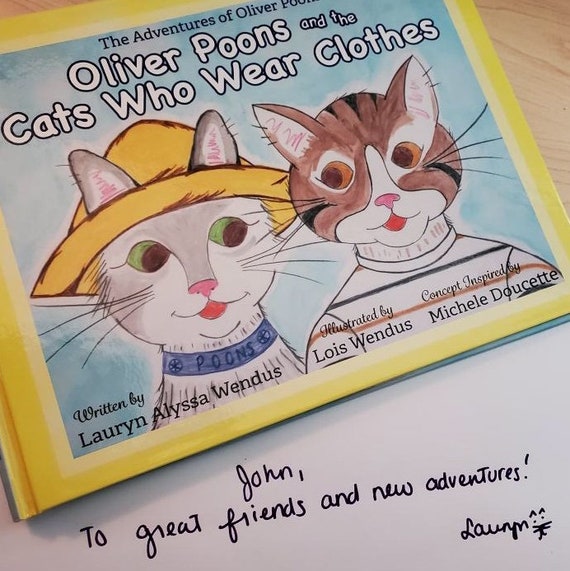 The Adventures of Oliver Poons
Oliver Poons and the
Cats Who Wear Clothes
POONS
Illustrated by
Lois Wendus
Concept Inspired by
Michele Doucette
Written by
Lauryn Alyssa Wendus
John,
To great friends and new adventures!
Lauryn